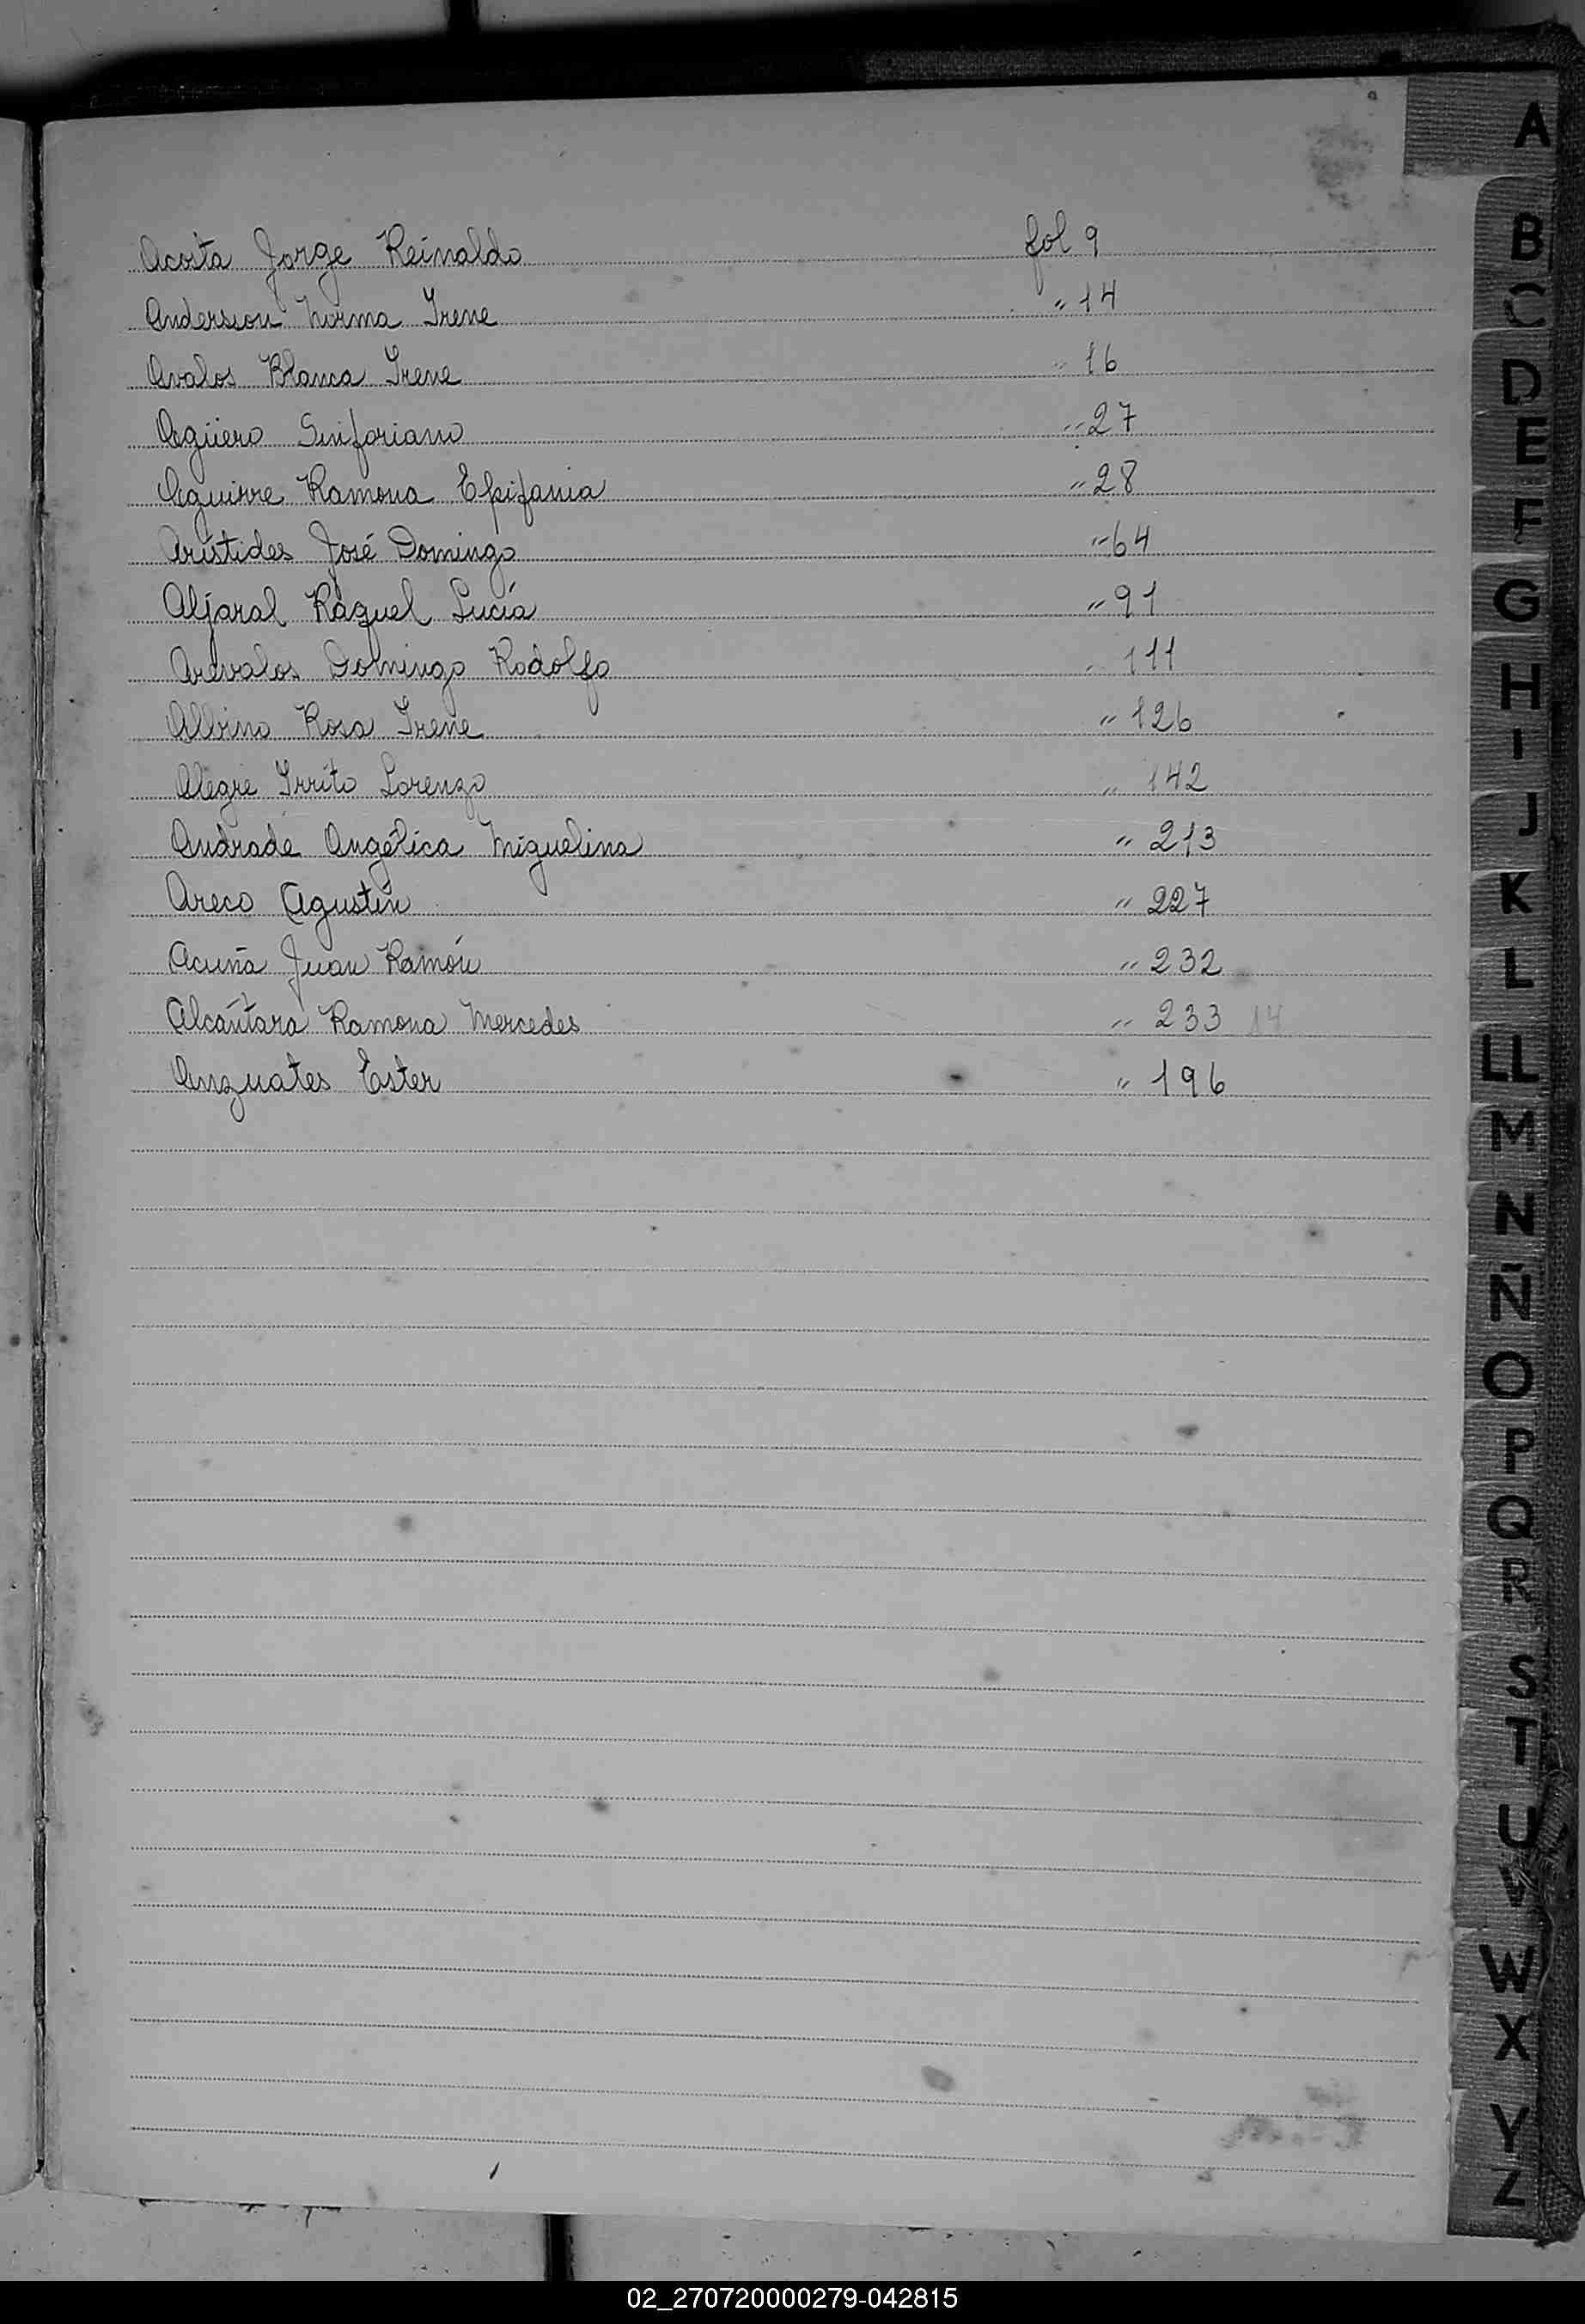 Acosta Jorge Reinaldo fol 9
Andersson Norma Irene " 14
Avalos Blanca Irene " 16
Agüero Sinforiano " 27
Aguirre Ramona Epifania " 28
Arístides José Domingo " 64
Aljaral Raquel Lucía " 91
Arévalos Domingo Rodolfo " 111
Albino Rosa Irene " 126
Alegre Irrito Lorenzo " 142
Andrade Angélica Miguelina " 213
Areco Agustín " 227
Acuña Juan Ramón " 232
Alcántara Ramona Mercedes " 233 14
Anzuates Ester " 196
A
B
C
D
E
F
G
H
I
J
K
L
LL
M
N
Ñ
O
P
Q
R
S
T
U
V
W
X
Y
Z
02_270720000279-042815